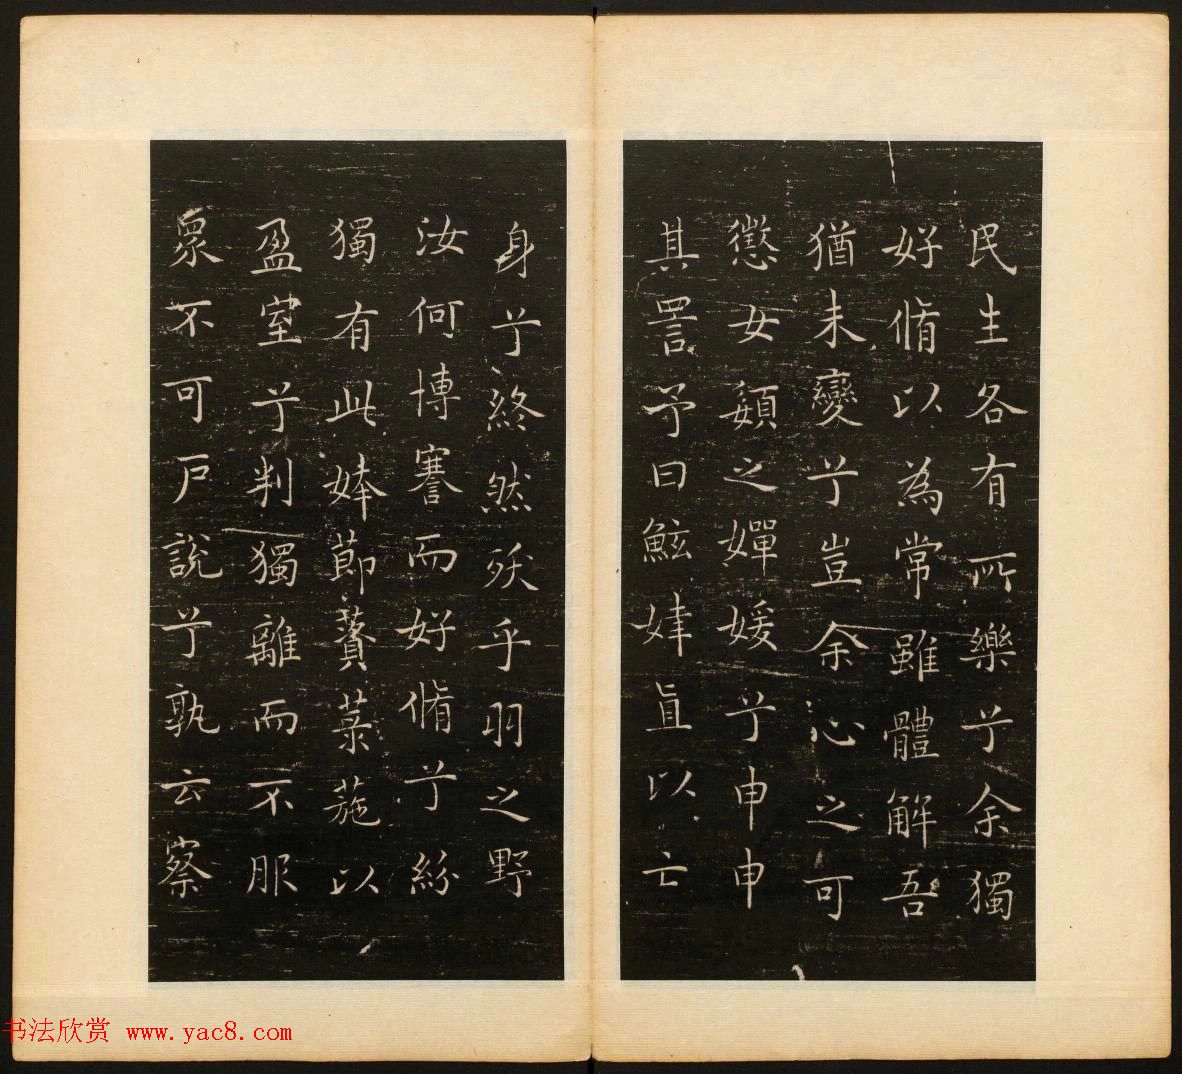 民生各有所樂兮余獨
好脩以為常雖體解吾
猶未變兮豈余心之可
懲女嬃之嬋媛兮申申
其詈予曰鯀婞直以亡
身兮終然殀乎羽之野
汝何博謇而好脩兮紛
獨有此姱節薋菉葹以
盈室兮判獨離而不服
衆不可戶說兮孰云察
书法欣赏 www.yac8.com